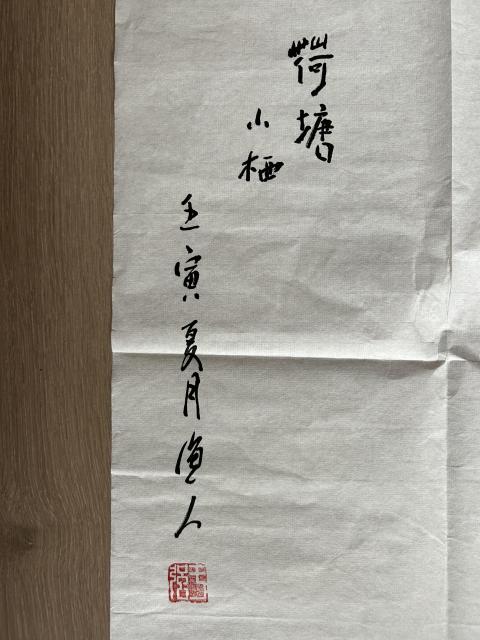 荷塘
小栖
壬寅夏月渔人